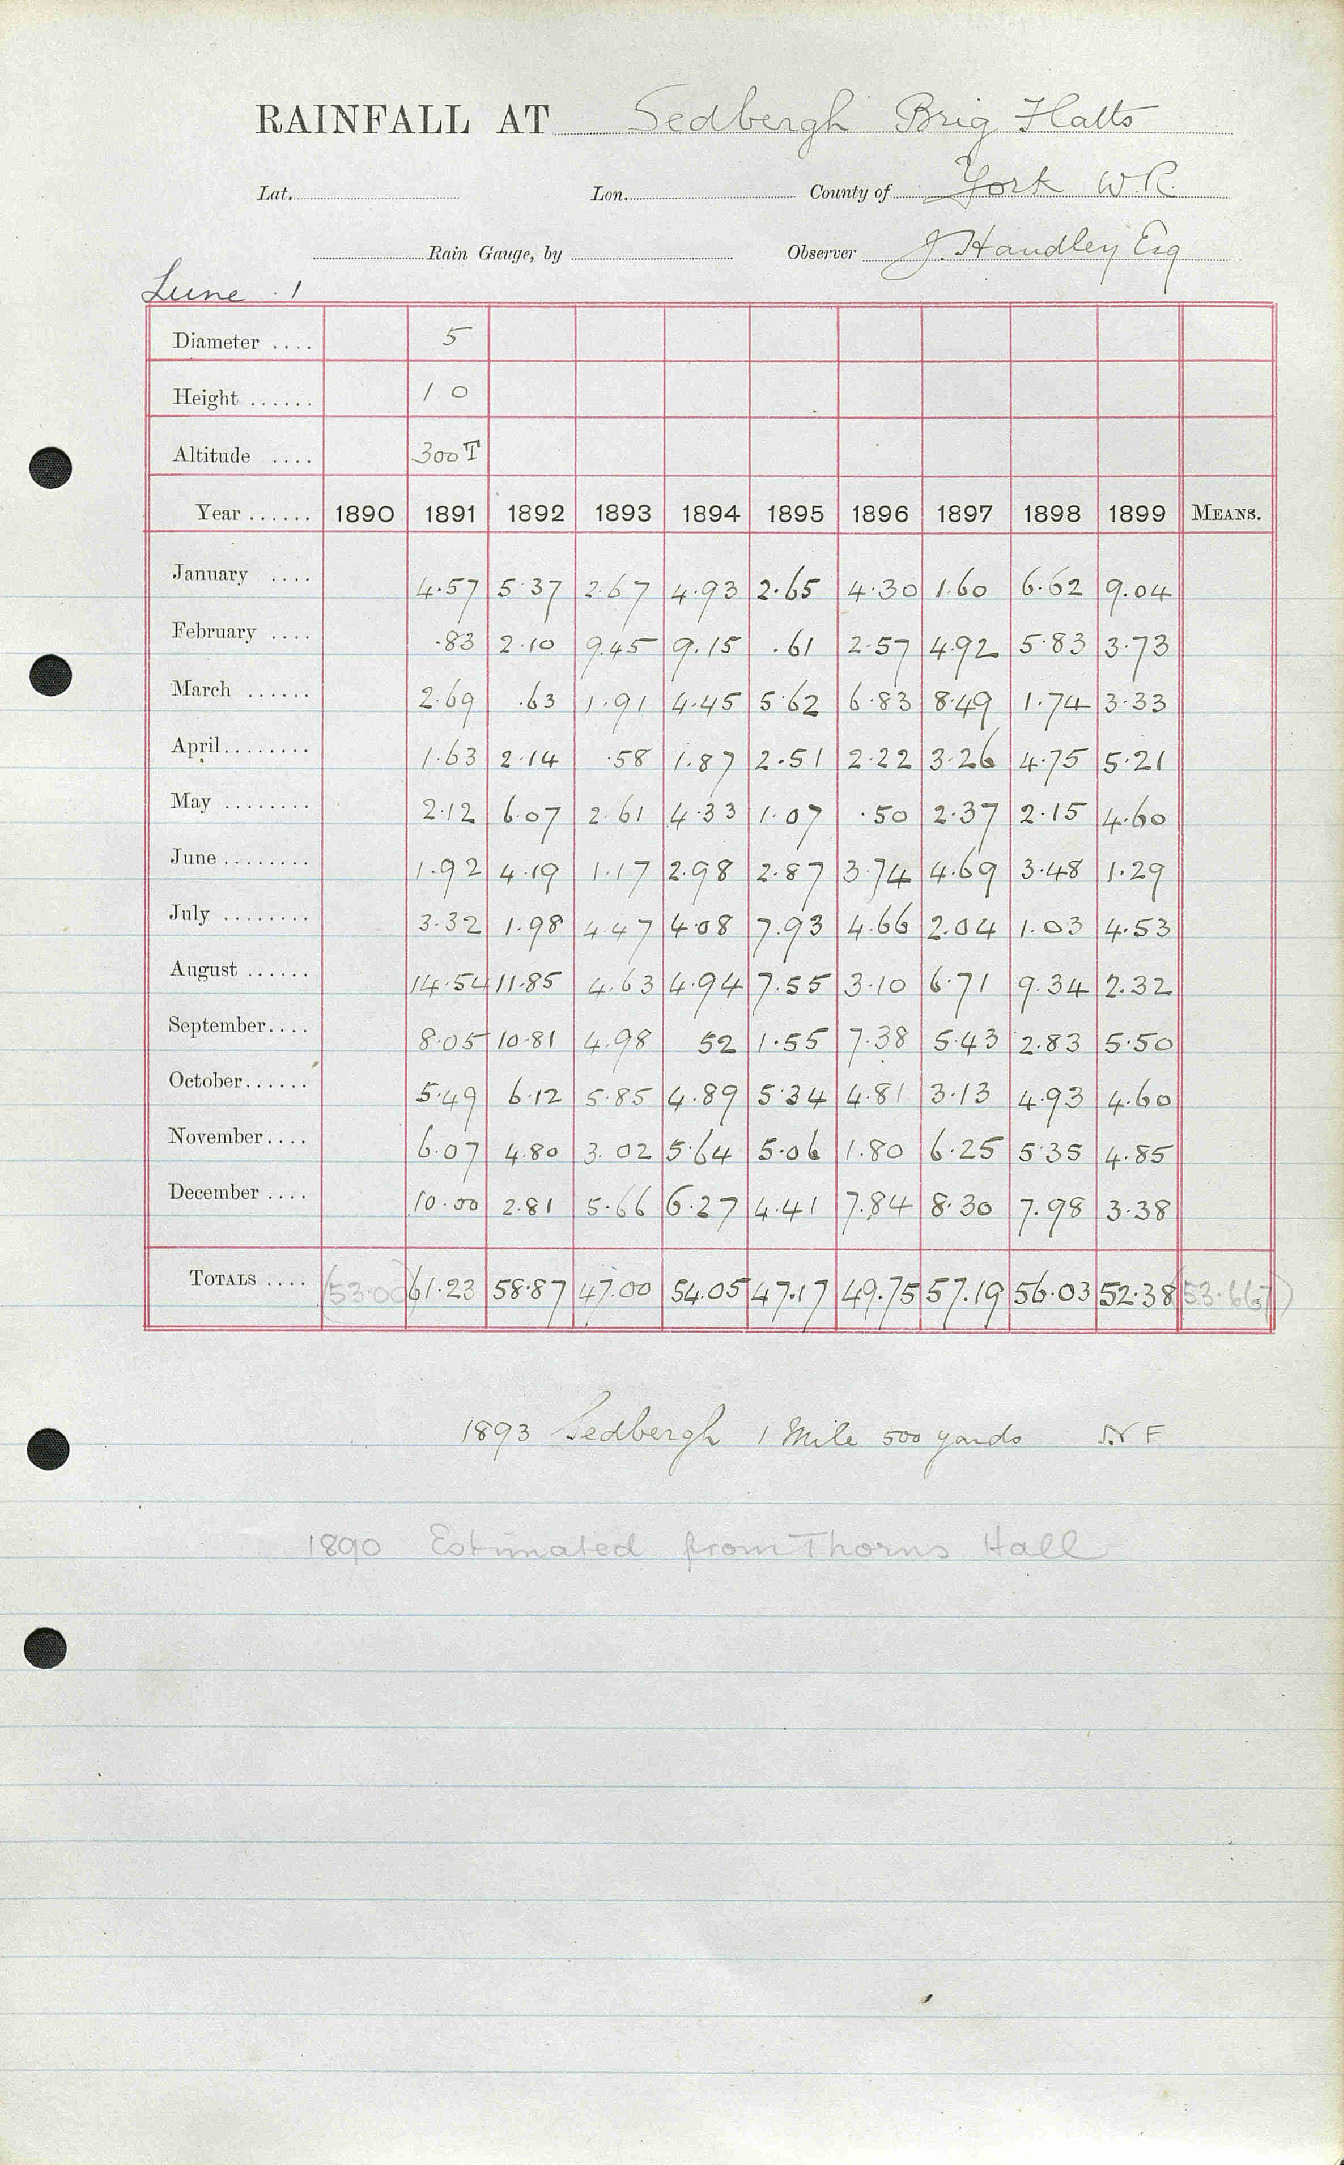 RAINFALL AT Sedbergh Brig Flatts
Lat. Lon. County of York W.R.
Rain Gauge, by Observer J. Handley Esq
Lune . 1
Diameter .... 5
Height ...... 1 0
Altitude .... 300 T
Year ...... 1890 1891 1892 1893 1894 1895 1896 1897 1898 1899 MEANS.
January .... 4.57 5.37 2.67 4.93 2.65 4.30 1.60 6.62 9.04
February .... .83 2.10 9.45 9.15 .61 2.57 4.92 5.83 3.73
March ...... 2.69 .63 1.91 4.45 5.62 6.83 8.49 1.74 3.33
April ........ 1.63 2.14 .58 1.87 2.51 2.22 3.26 4.75 5.21
May ........ 2.12 6.07 2.61 4.33 1.07 .50 2.37 2.15 4.60
June ........ 1.92 4.19 1.17 2.98 2.87 3.74 4.69 3.48 1.29
July ........ 3.32 1.98 4.47 4.08 7.93 4.66 2.04 1.03 4.53
August ...... 14.54 11.85 4.63 4.94 7.55 3.10 6.71 9.34 2.32
September.... 8.05 10.81 4.98 52 1.55 7.38 5.43 2.83 5.50
October...... 5.49 6.12 5.85 4.89 5.34 4.81 3.13 4.93 4.60
November.... 6.07 4.80 3.02 5.64 5.06 1.80 6.25 5.35 4.85
December .... 10.00 2.81 5.66 6.27 4.41 7.84 8.30 7.98 3.38
TOTALS .... (53.00) 61.23 58.87 47.00 54.05 47.17 49.75 57.19 56.03 52.38 (53.667)
1893 Sedbergh 1 Mile 500 yards N F
1890 Estimated from Thorns Hall